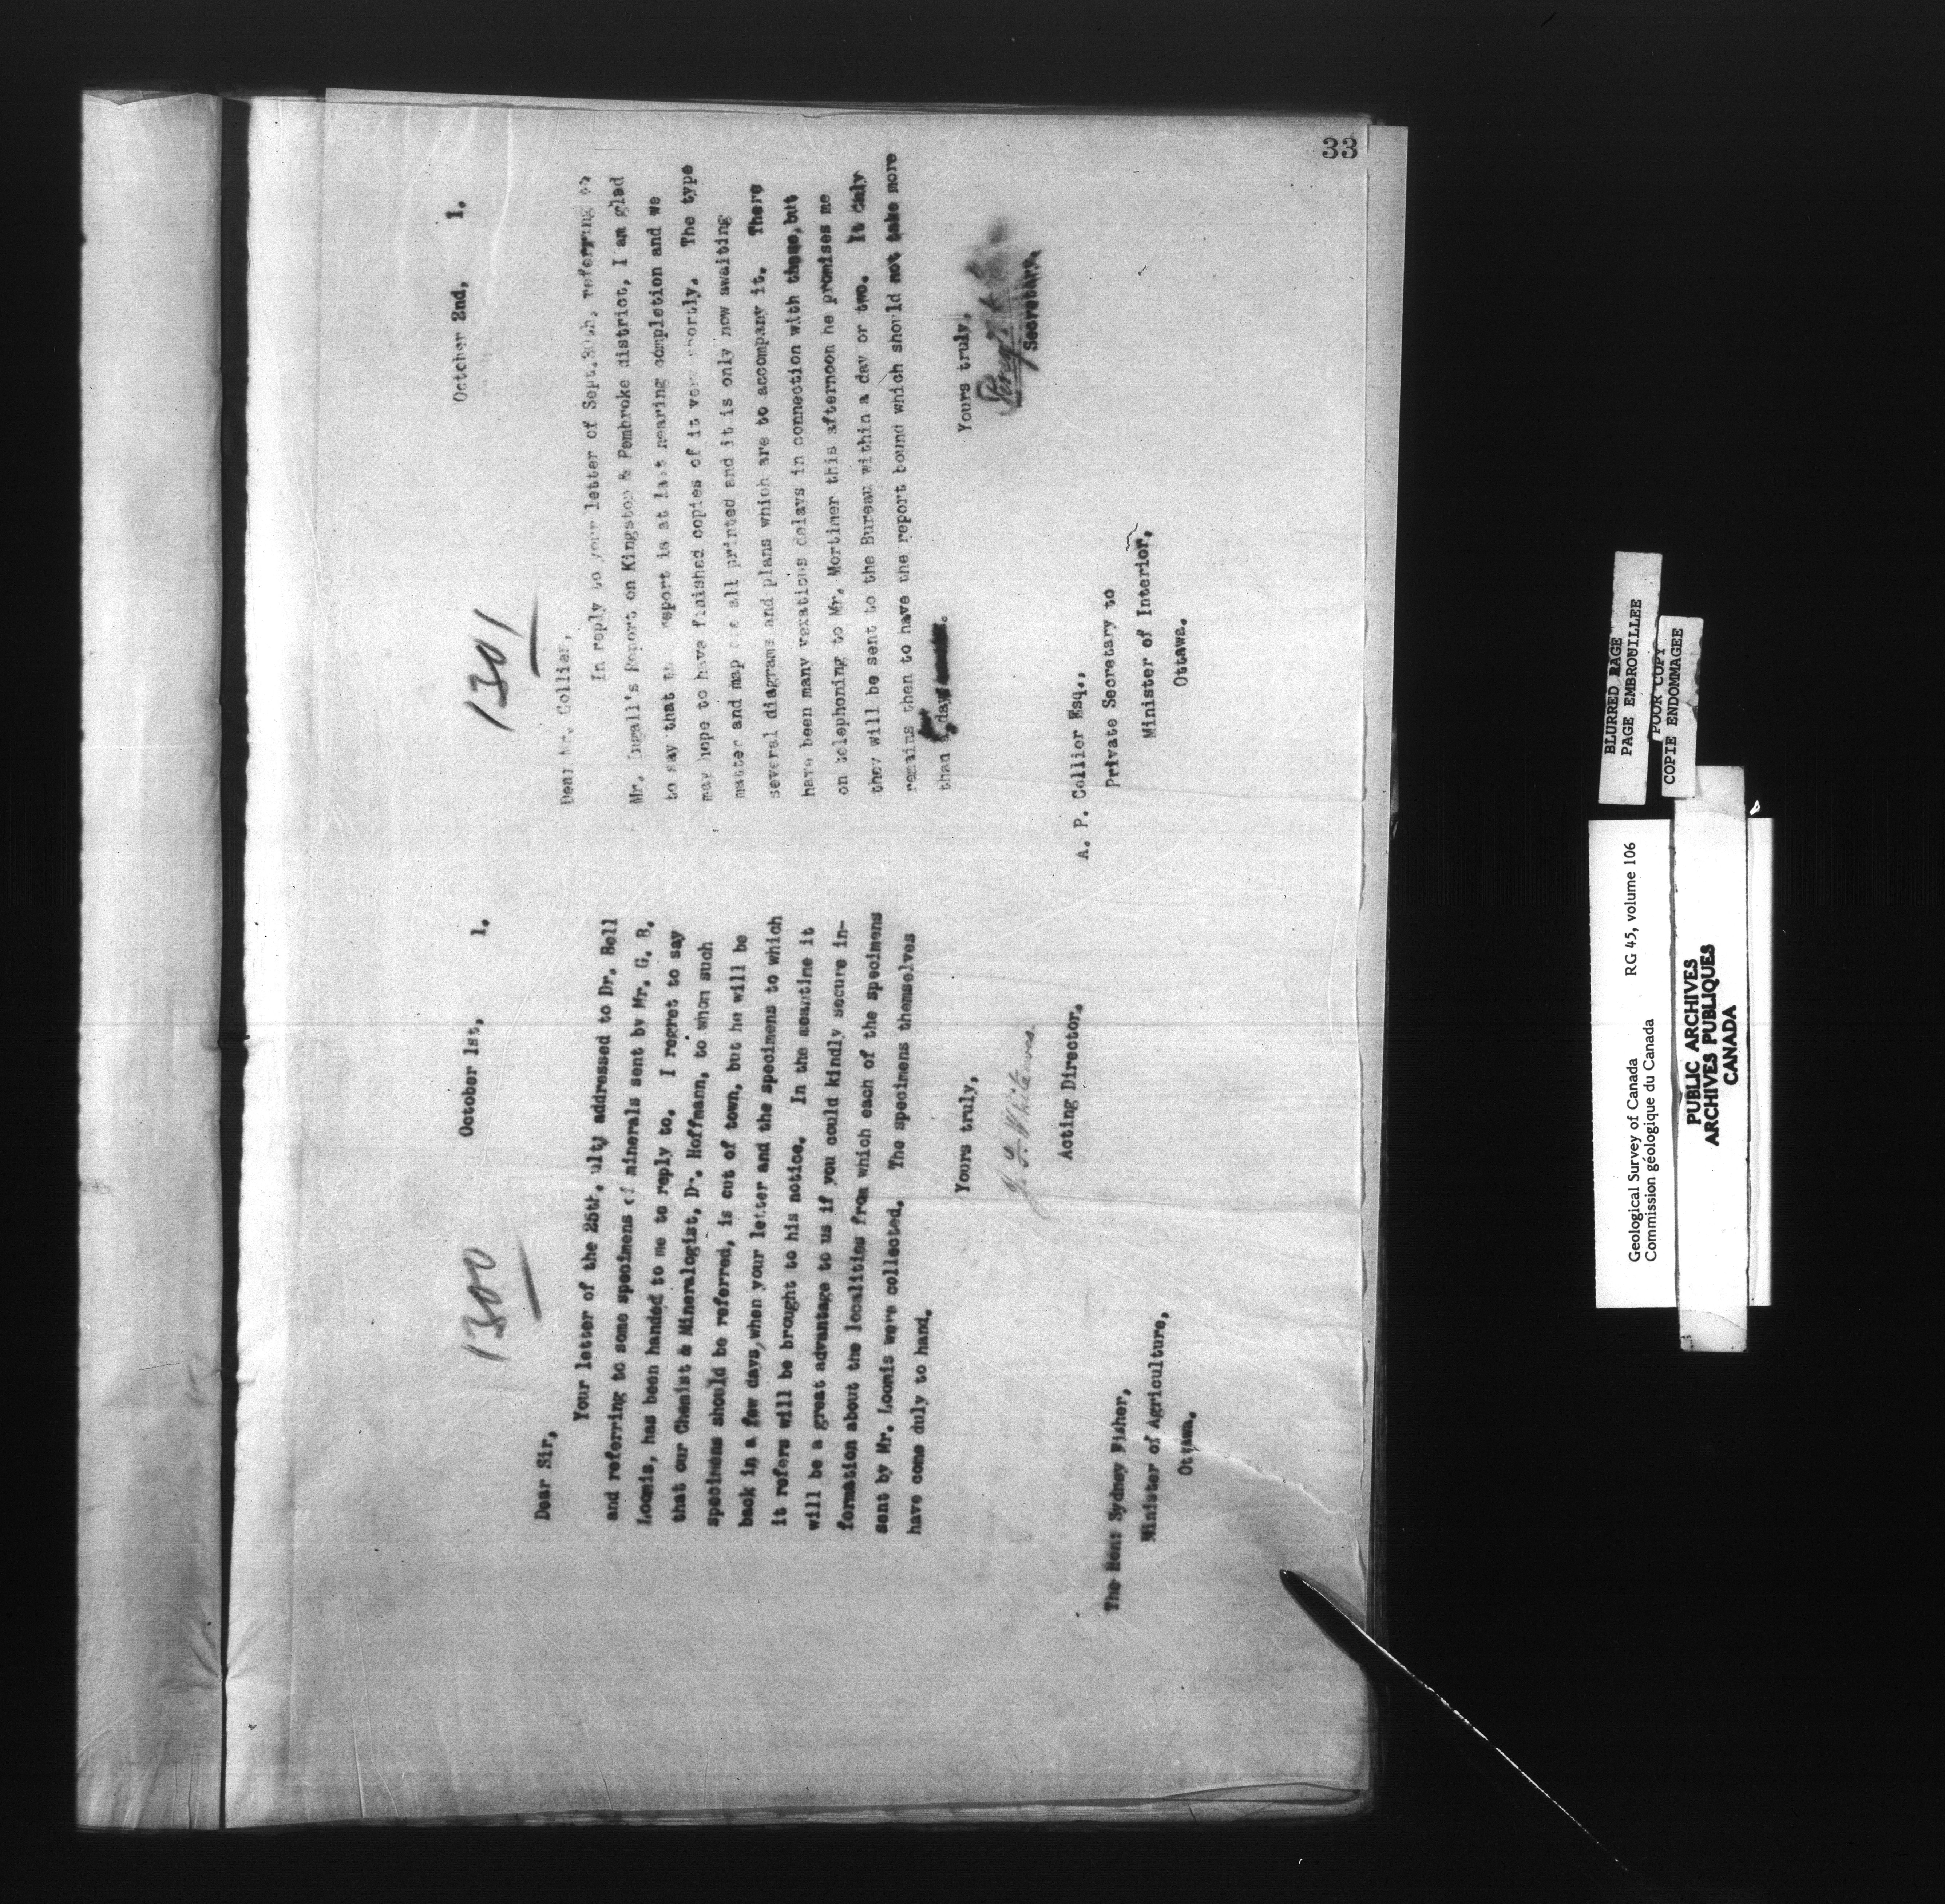 33
1300
October 1st, 1.
Dear Sir,
Your letter of the 25th. ult, addressed to Dr. Bell
and referring to some specimens of minerals sent by Mr. G. B.
Loomis, has been handed to me to reply to. I regret to say
that our Chemist & Mineralogist, Dr. Hoffmann, to whom such
specimens should be referred, is out of town, but he will be
back in a few days, when your letter and the specimens to which
it refers will be brought to his notice. In the meantime it
will be a great advantage to us if you could kindly secure in-
formation about the localities from which each of the specimens
sent by Mr. Loomis were collected. The specimens themselves
have come duly to hand.
Yours truly,
J. F. Whiteaves.
Acting Director.
The Hon: Sydney Fisher,
Minister of Agriculture,
Ottawa.
1301
October 2nd, 1.
Dear Mr. Collier,
In reply to your letter of Sept. 30th, referring to
Mr. Ingall's Report on Kingston & Pembroke district, I am glad
to say that the report is at last nearing completion and we
may hope to have finished copies of it very shortly. The type
matter and map are all printed and it is only now awaiting
several diagrams and plans which are to accompany it. There
have been many vexatious delays in connection with these, but
on telephoning to Mr. Mortimer this afternoon he promises me
they will be sent to the Bureau within a day or two. It only
remains then to have the report bound which should not take more
than a day
Yours truly,
Secretary.
A. P. Collier Esq.,
Private Secretary to
Minister of Interior,
Ottawa.
BLURRED PAGE
PAGE EMBROUILLEE
POOR COPY
COPIE ENDOMMAGEE
Geological Survey of Canada RG 45, volume 106
Commission géologique du Canada
PUBLIC ARCHIVES
ARCHIVES PUBLIQUES
CANADA